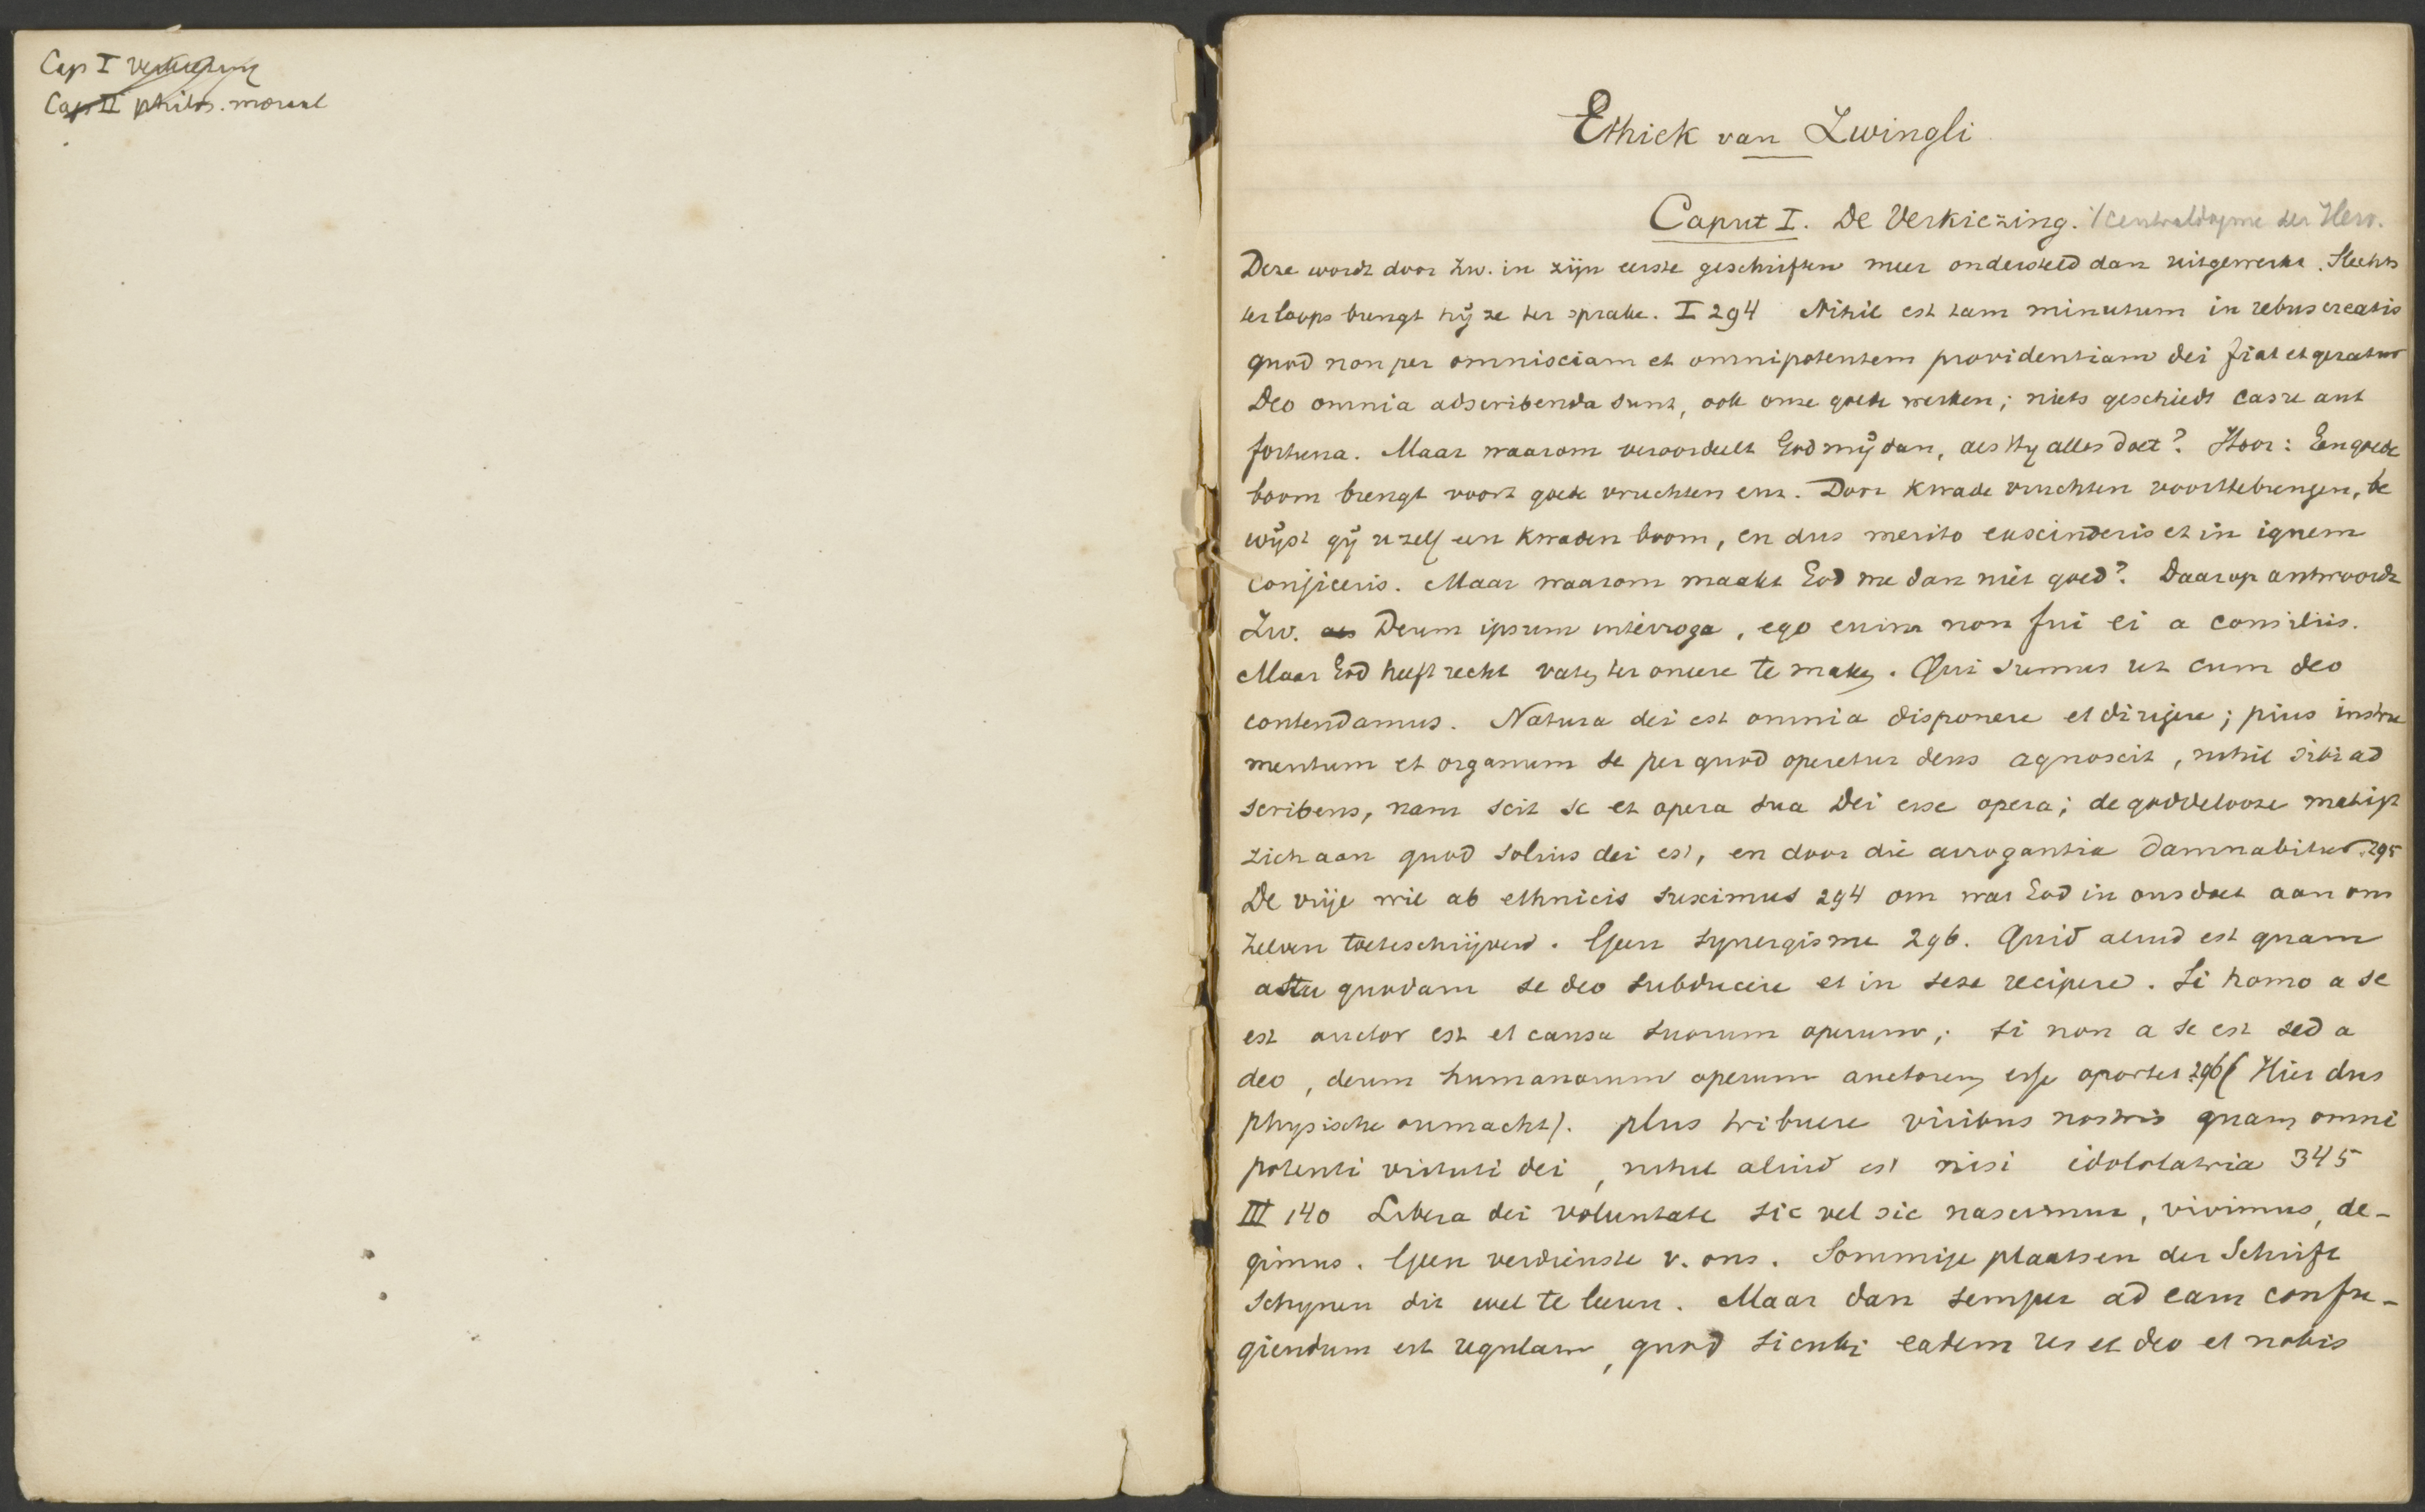 Cap I verkiezing
Cap II philos. moraal
Ethiek van Zwingli
Caput I. De Verkiezing. Centraldogma der Herv.
Deze wordt door Zw. in zijn eerste geschriften meer ondersteld dan uitgewerkt. Slechts
terloops brengt hij ze ter sprake. I 294 Nihil est tam minutum in rebus creatis
quod non per omnisciam et omnipotentem providentiam dei fiat et geratur
Deo omnia adscribenda sunt, ook onze goede werken; niets geschiedt casu aut
fortuna. Maar waarom veroordeelt God mij dan, als Hy alles doet? Hoor: Een goede
boom brengt voort goede vruchten enz. Door kwade vruchten voorttebrengen, be
wijst gij uzelf een kwaden boom, en dus merito euscinderis et in ignem
conjiceris. Maar waarom maakt God me dan niet goed? Daarop antwoordt
Zw. als Deum ipsum interroga, ego enim non fui ei a consiliis.
Maar God heeft recht vaten ter oneere te maken. Qui sumus ut cum deo
contendamus. Natura dei est omnia disponere et dirigere; pius instru
mentum et organum se per quod operetur deus agnoscit, nihil sibi ad
scribens, nam scit se et opera sua Dei esse opera; de goddelooze matigt
zich aan quod solius dei est, en door die arrogantia damnabitur. 295
De vrije wil ab ethnicis suximus 294 om wat God in ons doet aan ons
zelven toeteschrijven. Geen synergisme 296. Quid aliud est quam
astu quodam se deo subducere et in sese recipere. Si homo a se
est auctor est et causa suorum operum; si non a se est sed a
deo, deum humanorum operum auctorem esse oportet 296 (Hier dus
physische onmacht). plus tribuere viribus nostris quam omni
potenti virtuti dei, nihil aliud est nisi idololatria 345
III 140 Libera dei voluntate sic vel sic nascimur, vivimus, de-
gimus. Geen verdienste v. ons. Sommige plaatsen der Schrift
schynen dit wel te leeren. Maar dan semper ad eam confu-
giendum est regulam, quod sicubi eadem res et deo et nobis